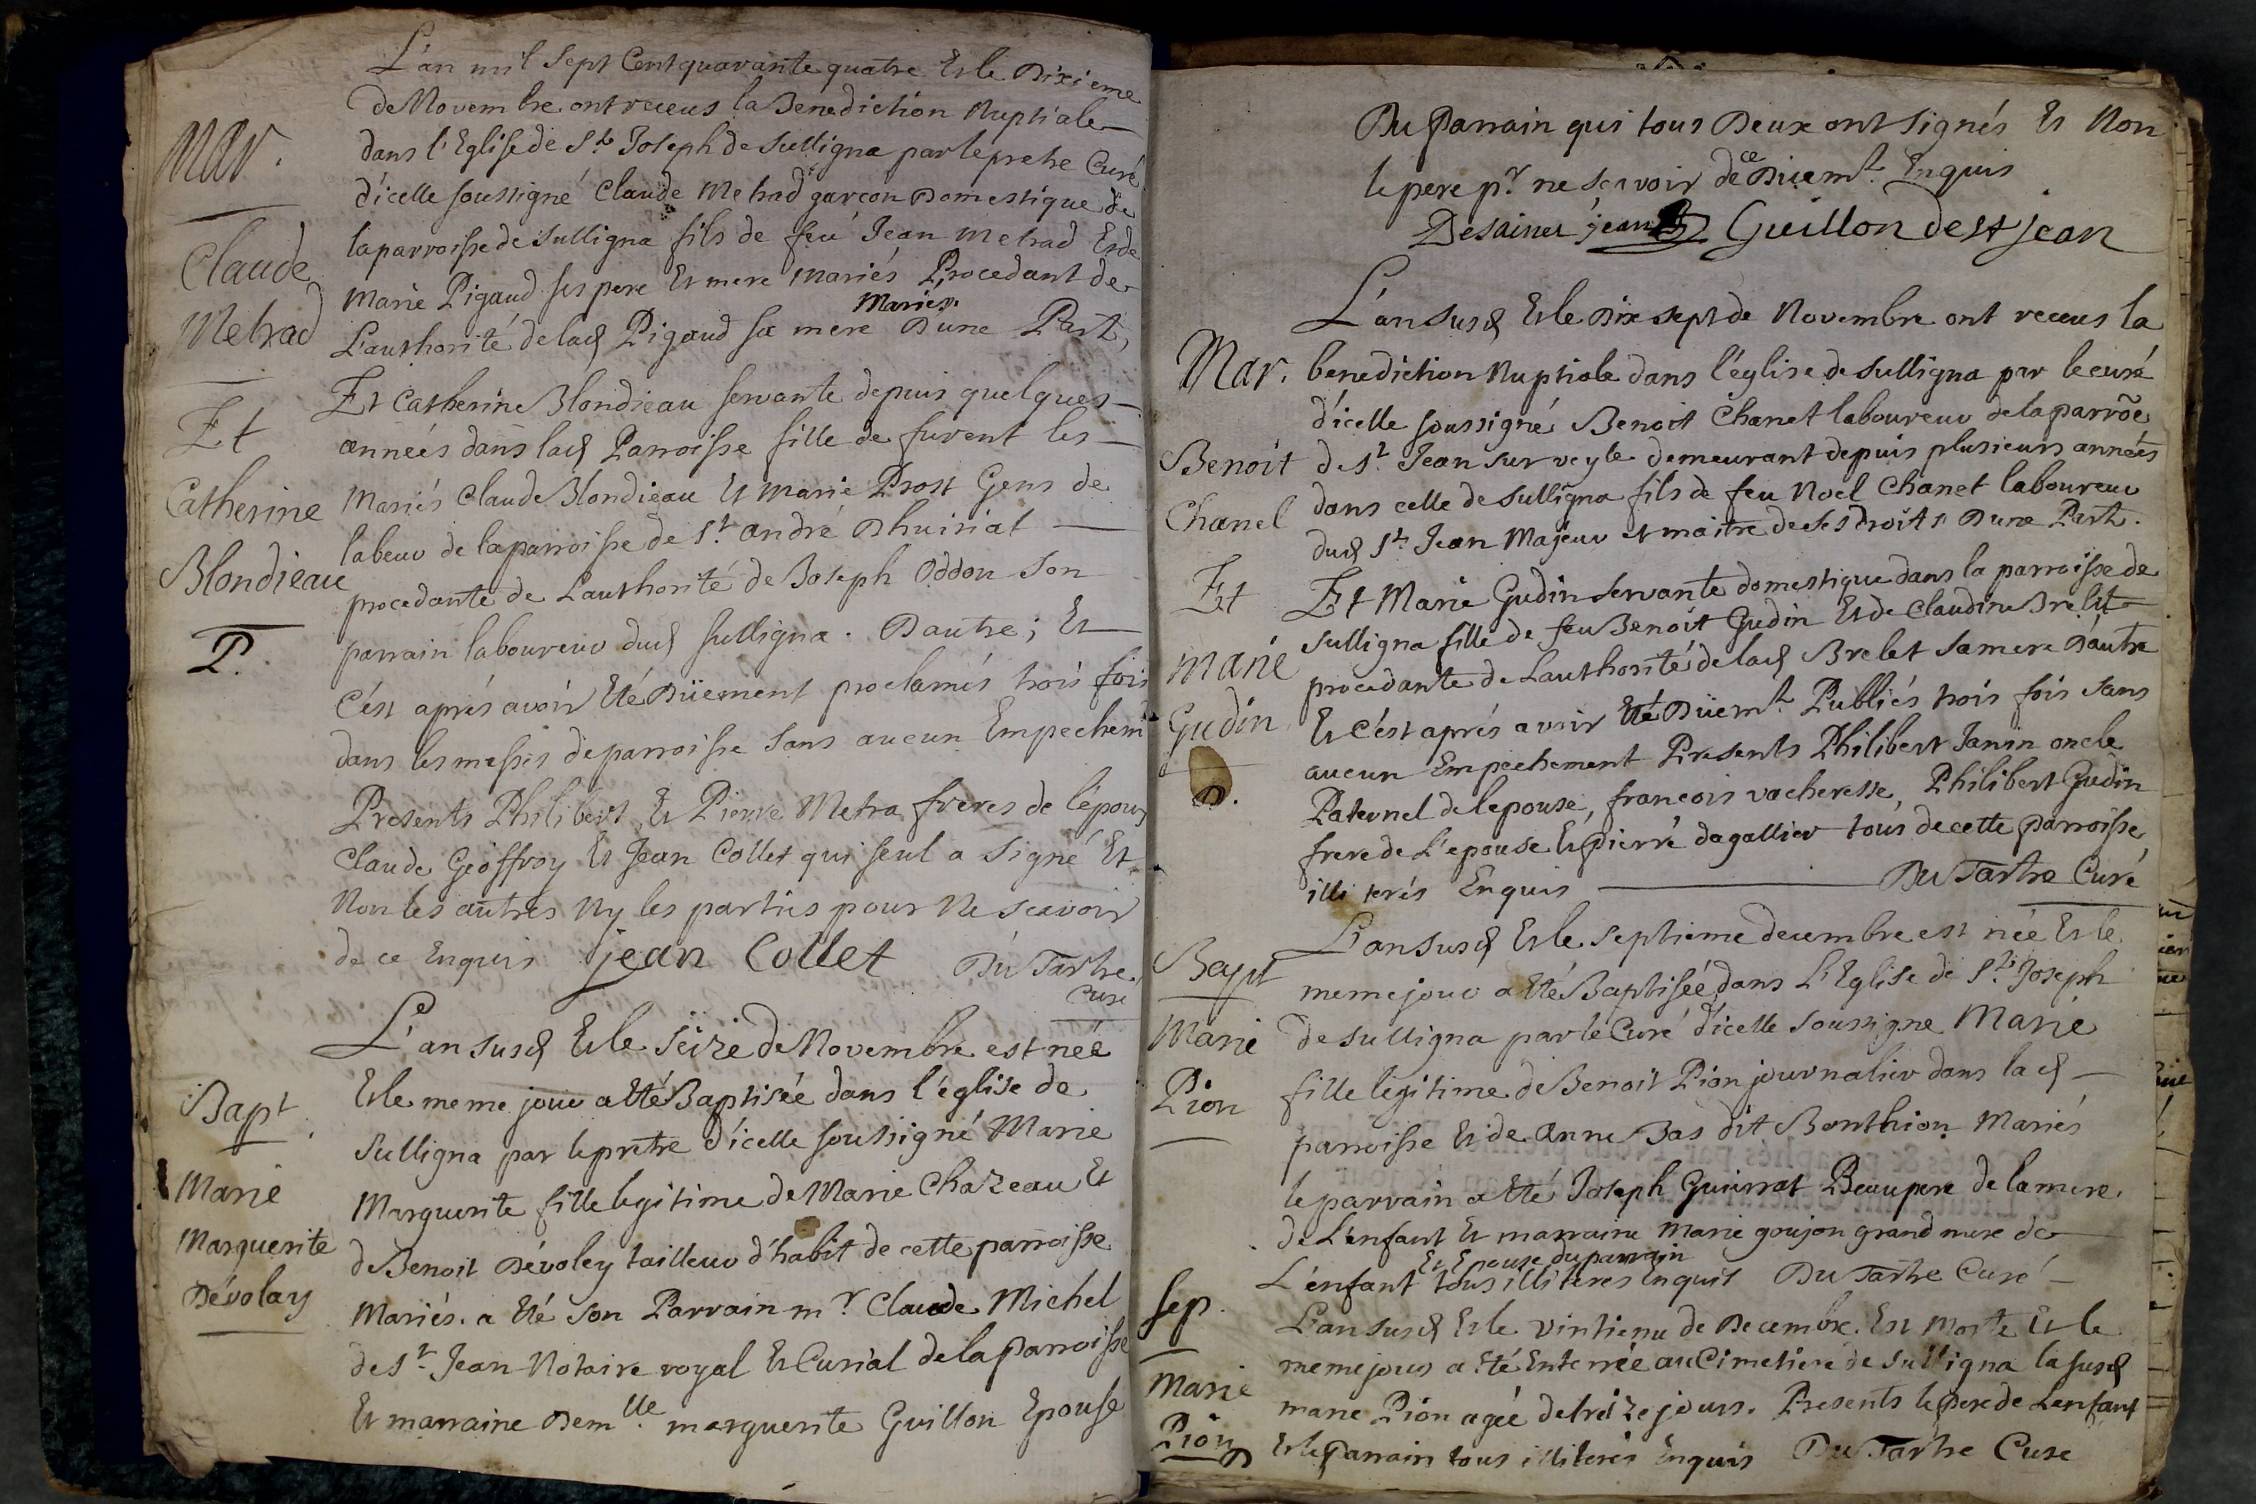 L'an mil sept Cent quarante quatre Et le Dixieme
de Novembre ont receus la Benediction Nuptiale
Mar.
dans l'Eglise de St Joseph de Sulligna par le pretre Curé
d'icelle soussigné Claude Metrad garcon Domestique de
la parroisse de Sulligna fils de feu Jean Metrad Et de
Claude
Marie Pigaud ses pere Et mere Mariés Procedant de
Metrad
Mariés.
L'authorité de lad Pigaud sa mere D'une Part,
Et Catherine Blondieau servante depuis quelques
Et
années dans lad Parroisse fille de furent les
Catherine
Mariés Claude Blondieau Et Marie Prost Gens de
labeur de la parroisse de St André Dhuiriat
Blondieau
procedante de Lauthorité de Joseph Oddon son
P.
parrain laboureur dud Sulligna. Dautre; Et
C'est aprés avoir Eté Düement proclamés trois fois
dans les messes de parroisse sans aucun Empechemt
Presents Philibert Et Pierre Metra freres de l'époux
Claude Geoffroy Et Jean Collet qui seul a signé Et
Non les autres Ny les parties pour Ne scavoir
de ce Enquis jean Collet Du Tartre
Curé
L'an susd Et le seize de Novembre est née
Et le meme jour a Eté Baptisée dans l'église de
Bapt.
Sulligna par le pretre d'icelle soussigné Marie
Marie
Marguerite fille legitime de Marie Chazeau Et
Marguerite
de Benoit Dévoley tailleur d'habit de cette parroisse
Dévolay
Mariés. a Eté son Parrain mr Claude Michel
de St Jean Notaire royal Et Curial de la Parroisse
Et marraine Demlle marguerite Guillon Epouse
Du Parrain qui tous Deux ont signés Et Non
le pere pr ne scavoir de ce Düemt Enquis
Desaint jean Guillon de st jean
L'an susd Et le Dix sept de Novembre ont receus la
Mar.
benediction Nuptiale dans l'église de Sulligna par le curé
d'icelle soussigné Benoit Chanet laboureur de la parrõe
Benoit
de St Jean sur veyle demeurant depuis plusieurs années
Chanel
dans celle de Sulligna fils de feu Noel Chanet laboureur
dud St Jean Majeur et maitre de ses Droits D'une Part.
Et
Et Marie Gudin servante domestique dans la parroisse de
Sulligna fille de feu Benoit Gudin Et de Claudine Brelet
Marie
procedante de Lauthorité de lad Brelet sa mere D'autre
Gudin
Et C'est aprés avoir Eté Düemt Publiés trois fois sans
aucun Empechement Presents Philibert Janin oncle
Paternel de l'epouse, francois vacheresse, Philibert Gudin
frere de L'epouse Et pierre dagallier tous de cette parroisse,
illiterés Enquis Du Tartre Curé
L'an susd Et le septieme decembre est née Et le
Bapt
meme jour a Eté Baptisée dans L'Eglise de St Joseph
Marie
de Sulligna par le Curé d'icelle soussigne Marie
Pion
fille legitime de Benoit Pion journalier dans lad
parroisse Et de Anne Bas dit Bonthion Mariés
le parrain a Eté Joseph Beaupere de la mere
de L'enfant Et marraine Marie goujon grand mere de
Et Epouse du parrain
L'enfant tous illiteres Enquis Du Tartre Curé
Sep.
L'an susd Et le vintieme de Decembre Est Morte Et le
meme jour a Eté Enterrée au Cimetiere de Sulligna la susd
Marie
marie Pion agée de treize jours. Presents le pere de Lenfant
Pion
Et le Parrain tous illiterés Enquis Du Tartre Curé